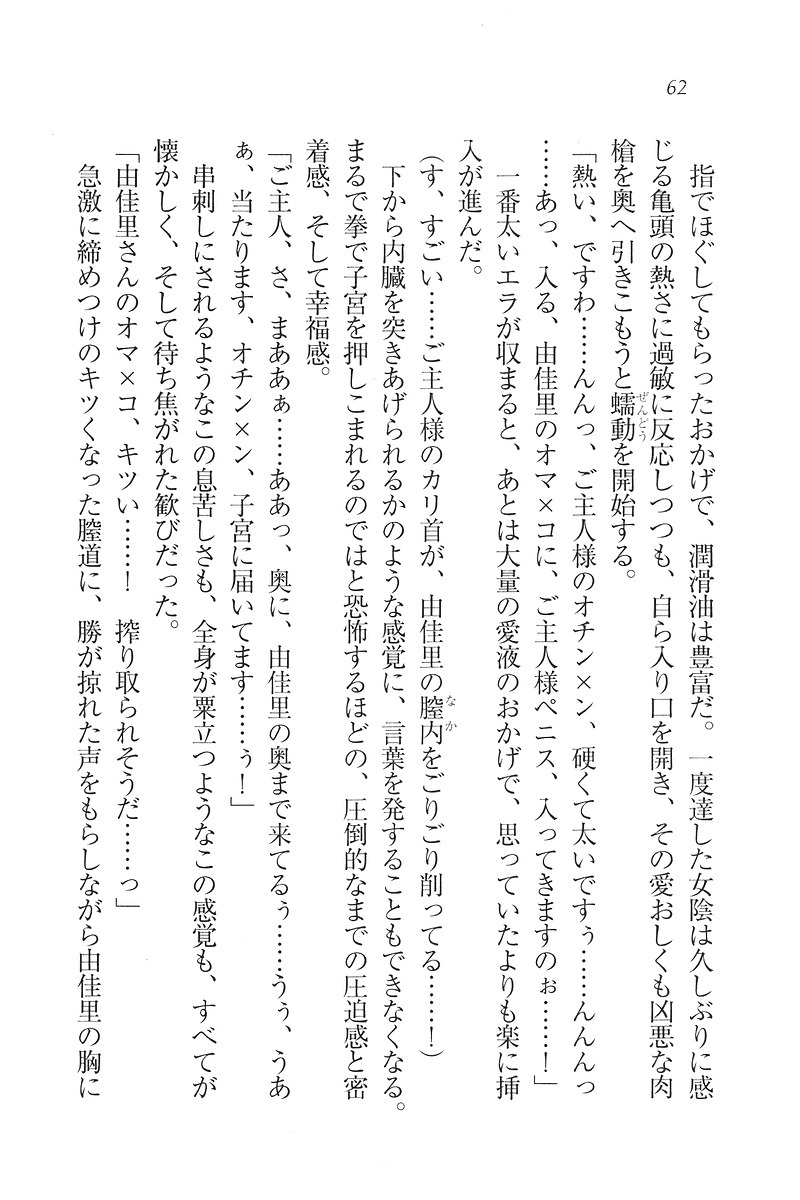 62
指でほぐしてもらったおかげで、潤滑油は豊富だ。一度達した女陰は久しぶりに感
じる亀頭の熱さに過敏に反応しつつも、自ら入り口を開き、その愛おしくも凶悪な肉
槍を奥へ引きこもうと蠕動ぜんどうを開始する。
「熱い、ですわ……んんっ、ご主人様のオチン×ン、硬くて太いですぅ……んんんっ
……あっ、入る、由佳里のオマ×コに、ご主人様ペニス、入ってきますのぉ……！」
一番太いエラが収まると、あとは大量の愛液のおかげで、思っていたよりも楽に挿
入が進んだ。
（す、すごい……ご主人様のカリ首が、由佳里の膣内なかをごりごり削ってる……！）
下から内臓を突きあげられるかのような感覚に、言葉を発することもできなくなる。
まるで拳で子宮を押しこまれるのではと恐怖するほどの、圧倒的なまでの圧迫感と密
着感、そして幸福感。
「ご主人、さ、まああぁ……ああっ、奥に、由佳里の奥まで来てるぅ……うぅ、うあ
ぁ、当たります、オチン×ン、子宮に届いてます……ぅ！」
串刺しにされるようなこの息苦しさも、全身が粟立つようなこの感覚も、すべてが
懐かしく、そして待ち焦がれた歓びだった。
「由佳里さんのオマ×コ、キツい……！　搾り取られそうだ……っ」
急激に締めつけのキツくなった膣道に、勝が掠れた声をもらしながら由佳里の胸に